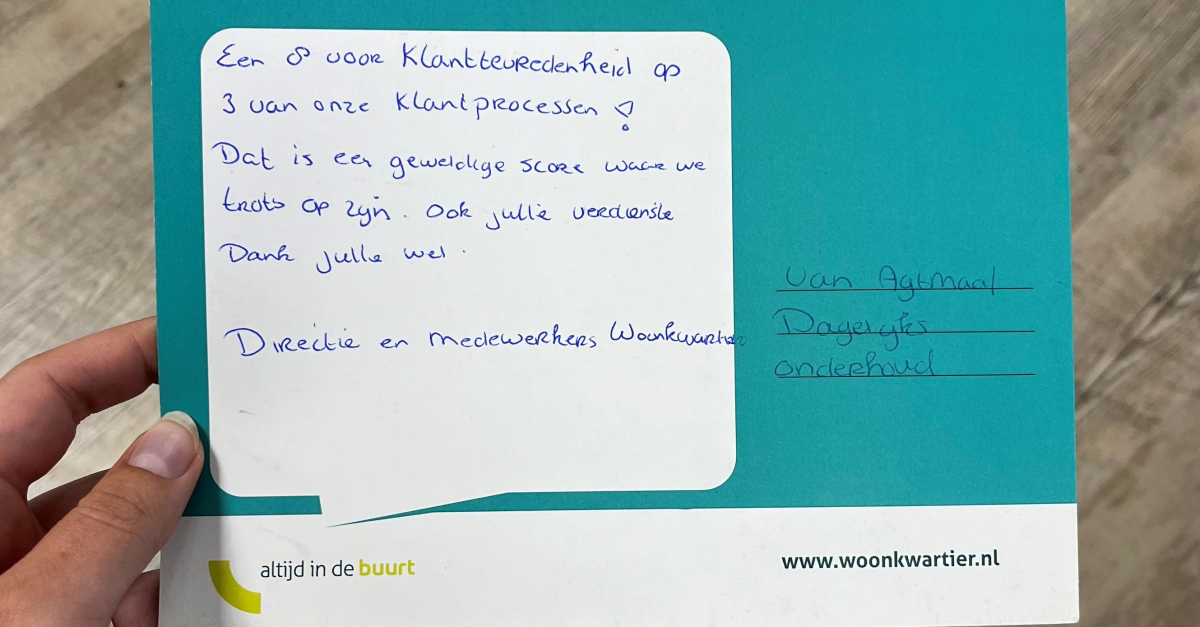 Een 8 voor klanttevredenheid op
3 van onze klantprocessen!
Dat is een geweldige score waar we
trots op zijn. Ook jullie verdienste
Dank jullie wel.
Directie en medewerkers Woonkwartier
van Agtmaal
Dagelijks
onderhoud
altijd in de buurt
www.woonkwartier.nl